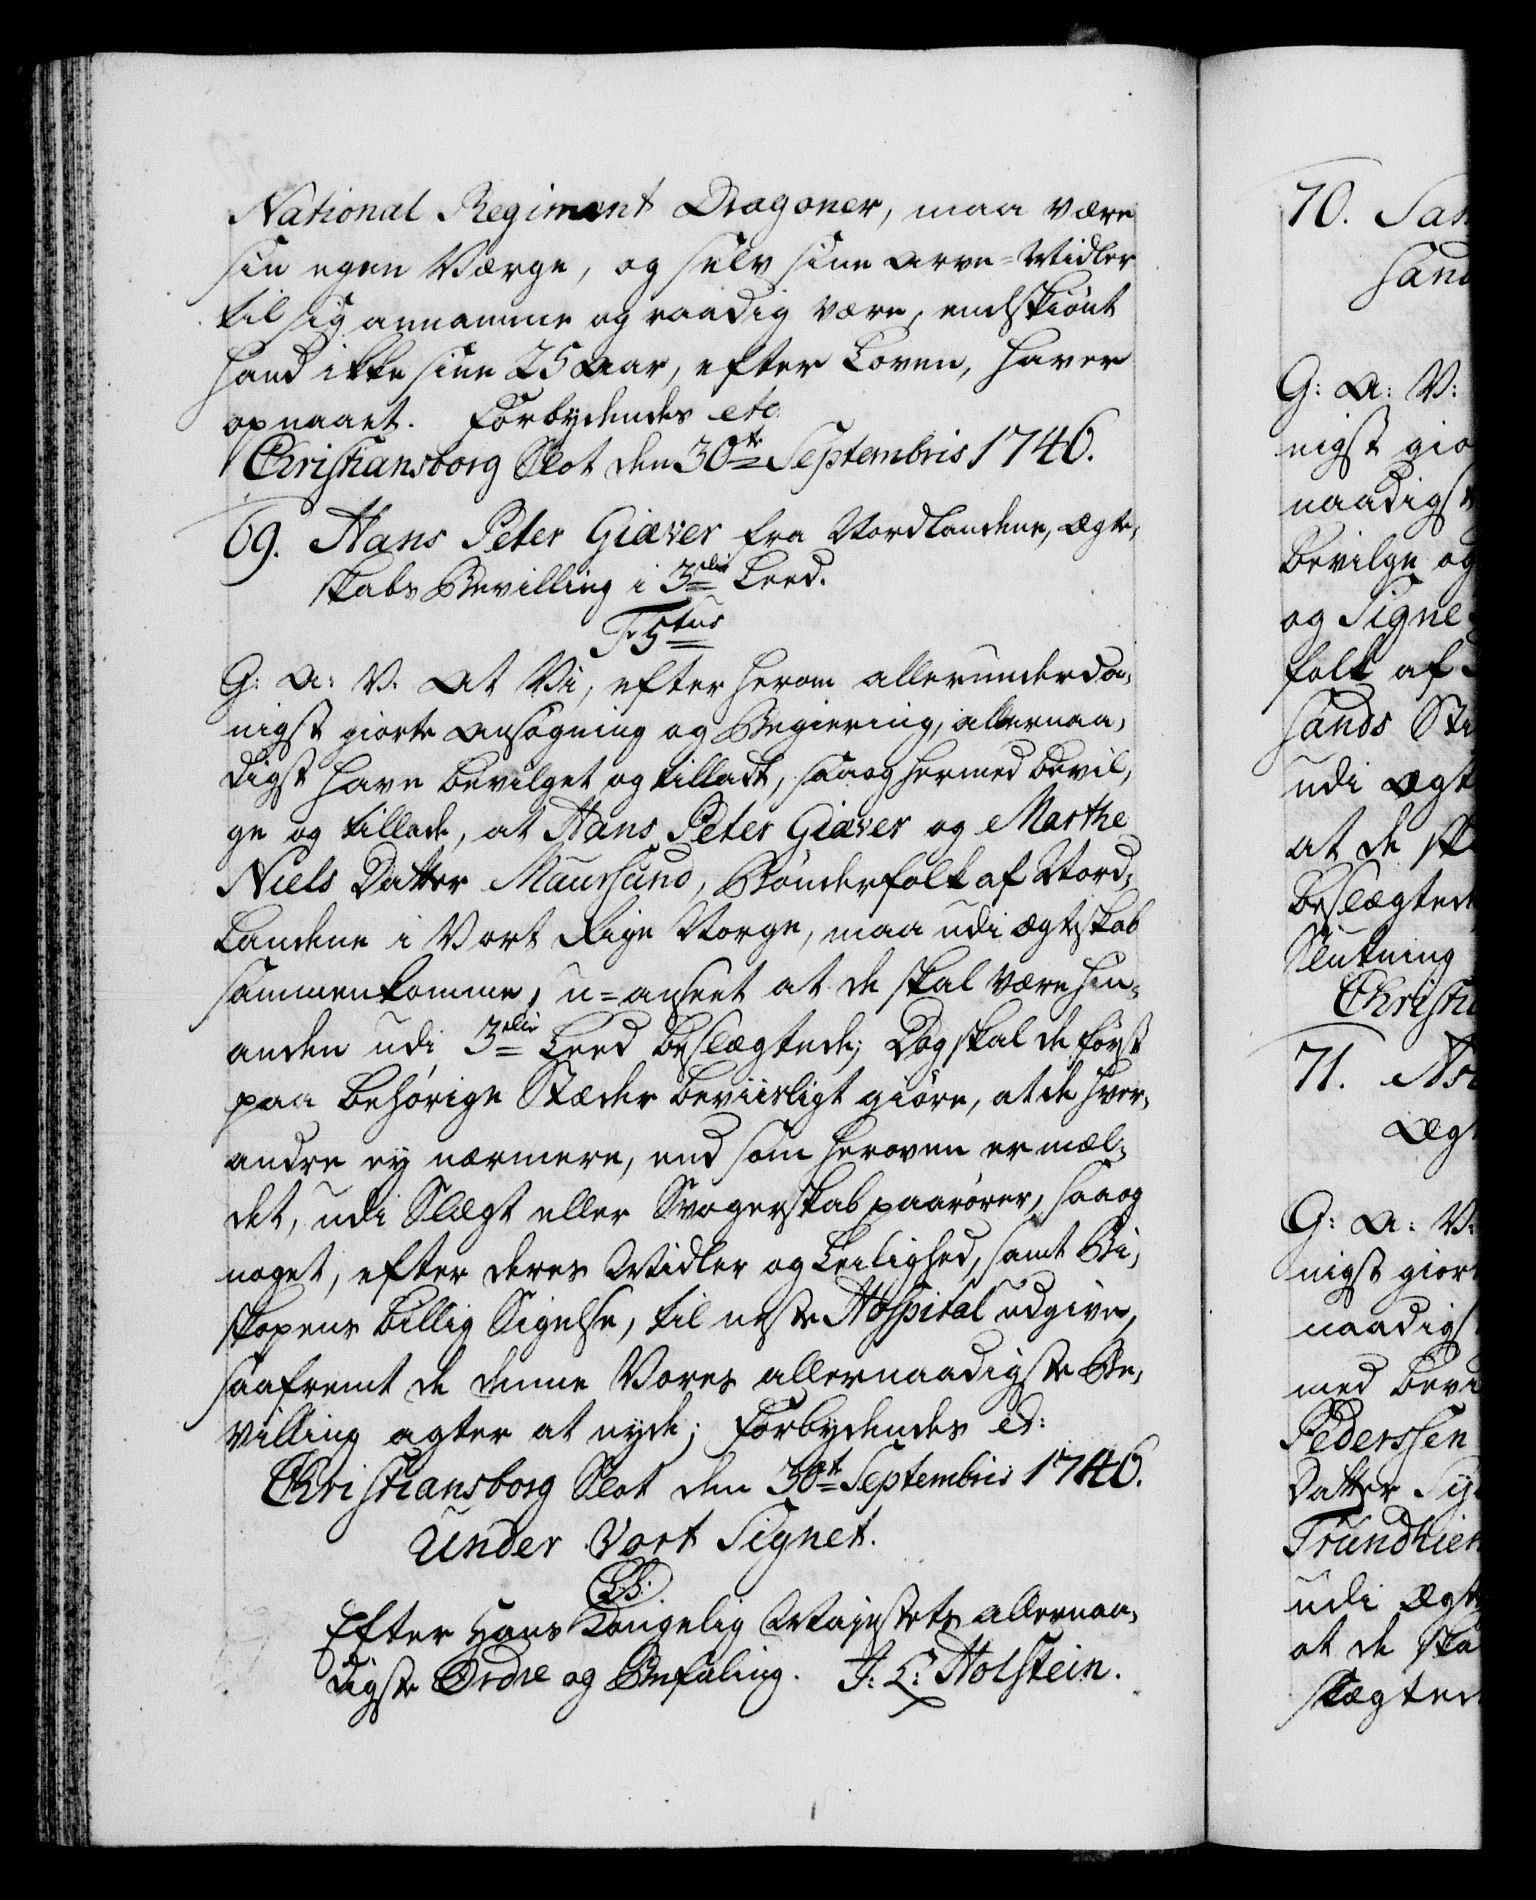 National Regiment Dragoner, maa være
sin egen Værge, og selv sine Arve-Midler
til sig annamme og raadig være, endskiønt
hand ikke sine 25 Aar, efter Loven, haver
opnaaet. Forbydendes etc.
Christiansborg Slot den 30te Septembris 1746.
69. Hans Peter Giæver fra Nordlandene, Ægte-
skabs Bevilling i 3die Leed.
F 5tus
G: A: V. At Vi, efter herom allerunderda-
nigst giorte Ansøgning og Begiering, allernaa-
digst have bevilget og tilladt, saa og hermed bevil-
ge og tillade, at Hans Peter Giæver og Marthe
Niels Datter Maursund, Bønderfolk af Nord-
Landene i Vort Rige Norge, maa udi Ægteskab
sammenkomme, u-anseet at de skal være hin-
anden udi 3die Leed beslægtede; Dog skal de først
paa behørige Stæder beviisligt giøre, at de hver-
andre ey nærmere, end som heroven er mel-
det, udi Slægt eller Svogerskab paarører, saa og
noget, efter deres Midler og Leilighed, samt Bi-
skopens billig Sigelse, til neste Hospital udgive,
saafremt de denne Vores allernaadigste Be-
villing agter at nyde; Forbydendes etc:
Christiansborg Slot den 30te Septembris 1746.
Under Vort Signet.
L.S.
Efter Hans Kongelig Majestets allernaa-
digste Ordre og Befaling. J: L: Holstein.
70. San
sand
G: A: V:
nigst gio
naadigst
bevilge og
og Signe
folk af
sands Sti
udi Ægt
at de sk
beslægtede
Slutning
Christi
71.
Ægt
G: A: V:
nigst giort
naadigs
med bevi
Pederssen
Datter
Trundhiem
udi Ægt
at de ska
slægted